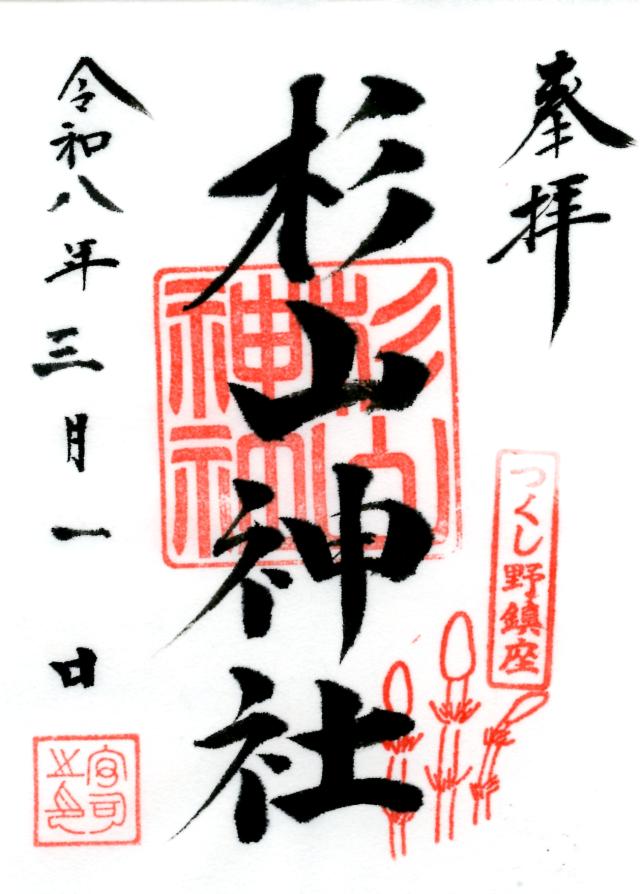 奉拝
つくし野鎮座
杉山神社
令和八年三月一日
宮司之印